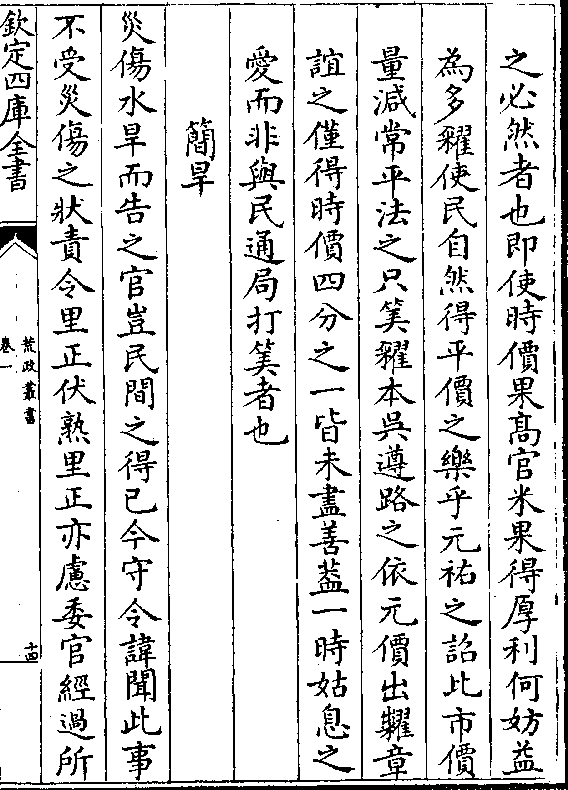 之必然者也即使時價果高官米果得厚利何妨益
為多糴使民自然得平價之樂乎元祐之詔比市價
量減常平法之只筭糴本吳遵路之依元價出糶章
誼之僅得時價四分之一皆未盡善葢一時姑息之
愛而非與民通局打筭者也
簡旱
災傷水旱而告之官豈民間之得已今守令諱聞此事
不受災傷之狀責令里正伏熟里正亦慮委官經過所
欽定四庫全書
荒政叢書
卷一
十四